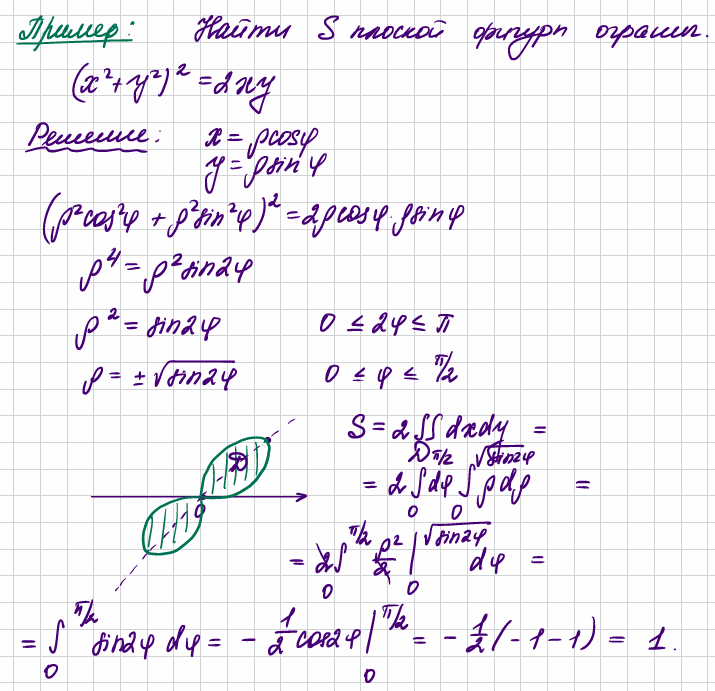 Пример: Найти S плоской фигуры огранич.
(x²+y²)² = 2xy
Решение: x = ρcosφ
y = ρsinφ
(ρ²cos²φ + ρ²sin²φ)² = 2ρcosφ·ρsinφ
ρ⁴ = ρ²sin2φ
ρ² = sin2φ 0 ≤ 2φ ≤ π
ρ = ±√sin2φ 0 ≤ φ ≤ π/2
S = 2∬_D dxdy =
D
0
= 2∫_0^{π/2} dφ ∫_0^{√sin2φ} ρdρ =
= 2∫_0^{π/2} ρ²/2 |_0^{√sin2φ} dφ =
= ∫_0^{π/2} sin2φ dφ = -1/2 cos2φ |_0^{π/2} = -1/2(-1-1) = 1.